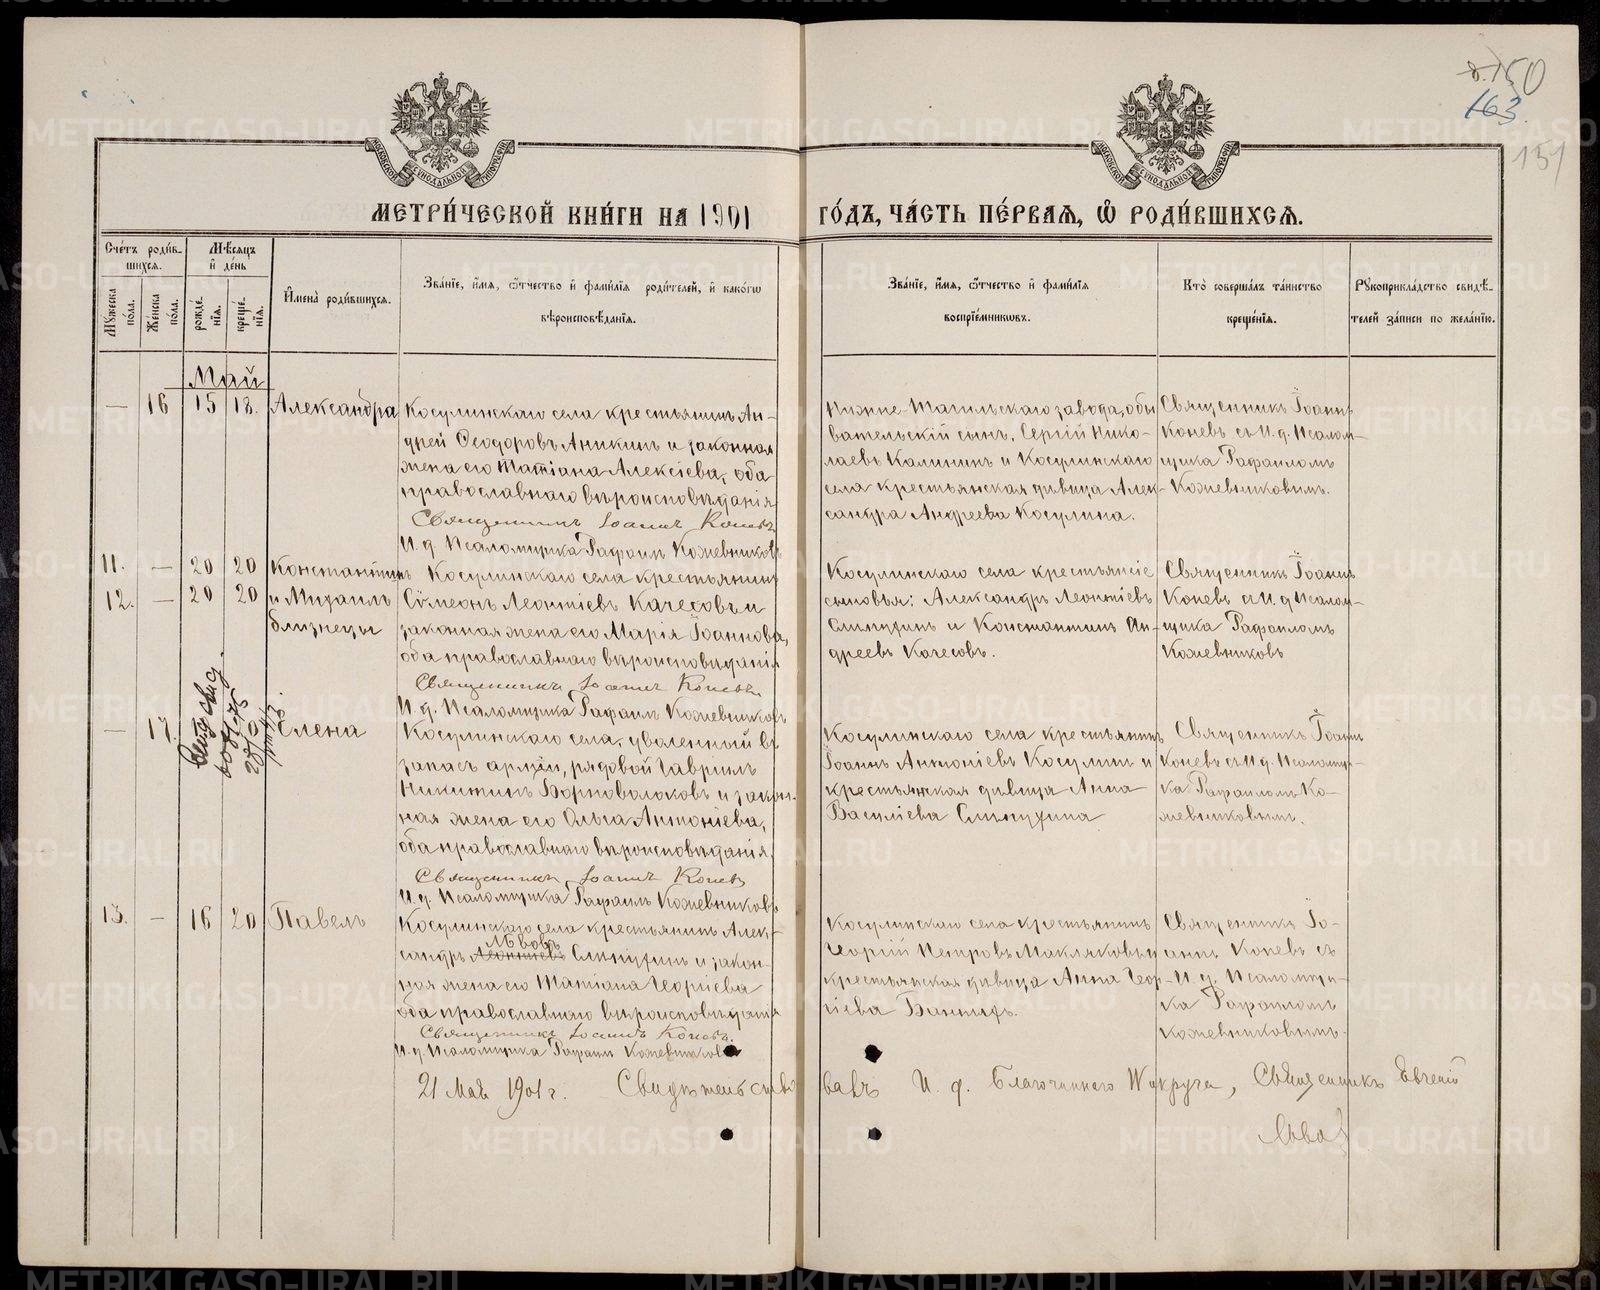 150
163.
151
МЕТРИ́ЧЕСКОЙ КНИ́ГИ НА 1901 ГО́ДЪ, ЧА́СТЬ ПЕ́РВАЯ, Ѡ҆ РОДИ́ВШИХСЯ.
Сче́тъ роди́в-
шихся.
Мѣ́сяцъ
и҆ де́нь
Мꙋ́жеска
по́ла.
Же́нска
по́ла.
рожде́-
нїя.
креще́-
нїя.
И҆мена̀ роди́вшихся.
Зва́нїе, и҆́мя, ѻ҆́тчество и҆ фами́лїя роди́телей, и҆ како́гѡ
вѣроисповѣ́данїя.
Зва́нїе, и҆́мя, ѻ҆́тчество и҆ фами́лїя
воспрїе́мникѡвъ.
Кто̀ соверша́лъ та́инство
креще́нїя.
Рꙋкоприкла́дство свидѣ́-
телей за́писи по жела́нїю.
Май
— 16 15 18. Александра
Косулинскаго села крестьянинъ Ан-
дрей Ѳеодоровъ Аникинъ и законная
жена его Татіана Алексіева, оба
православнаго вѣроисповѣданія
Священникъ Іоаннъ Коневъ
И. д. Псаломщика Рафаилъ Кожевниковъ
Нижне-Тагильскаго завода, обы
вательскій сынъ, Сергій Нико-
лаевъ Калининъ и Косулинскаго
села крестьянская дѣвица Алек-
сандра Андреева Косулина.
Священникъ Іоаннъ
Коневъ съ И. д. Псалом-
щика Рафаиломъ
Кожевниковымъ.
11. — 20 20 Константинъ
12. — 20 20 и Михаилъ
близнецы
Косулинскаго села крестьянинъ
Сѵмеонъ Леонтіевъ Качесовъ и
законная жена его Марія Іоаннова,
оба православнаго вѣроисповѣданія
Священникъ Іоаннъ Коневъ
И. д. Псаломщика Рафаилъ Кожевниковъ
Косулинскаго села крестьянскіе
сыновья: Александръ Леонтіевъ
Слинухинъ и Константинъ Ан-
дреевъ Качесовъ.
Священникъ Іоаннъ
Коневъ съ И. д Псалом-
щика Рафаиломъ
Кожевниковъ
— 17. Елена
Косулинскаго села, уволенный въ
запасъ арміи, рядовой Гавріилъ
Никитинъ Ворноволоковъ и закон-
ная жена его Ольга Антоніева,
оба православнаго вѣроисповѣданія,
Священникъ Іоаннъ Коневъ
И. д. Псаломщика Рафаилъ Кожевниковъ
Косулинскаго села крестьянинъ
Іоаннъ Антоніевъ Косулинъ и
крестьянская дѣвица Анна
Василіева Слинухина
Священникъ Іоаннъ
Коневъ съ И. д. Псаломщи-
ка Рафаиломъ Ко-
жевниковымъ.
13. — 16 20 Павелъ
Косулинскаго села крестьянинъ Алек-
Львовъ
сандръ Леонтіевъ Слинухинъ и закон-
ная жена его Татіана Георгіева
оба православнаго вѣроисповѣданія
Священникъ Іоаннъ Коневъ.
И. д. Псаломщика Рафаилъ Кожевниковъ
Косулинскаго села крестьянинъ
Георгій Петровъ Макляковъ и
крестьянская дѣвица Анна Геор-
гіева
Священникъ Іо-
аннъ Коневъ съ
И. д. Псаломщи-
ка Рафаиломъ
Кожевниковымъ.
21 Мая 1901 г. Свидѣтельствовалъ И. д. Благочиннаго округа, Священникъ Евгеній
Львовъ